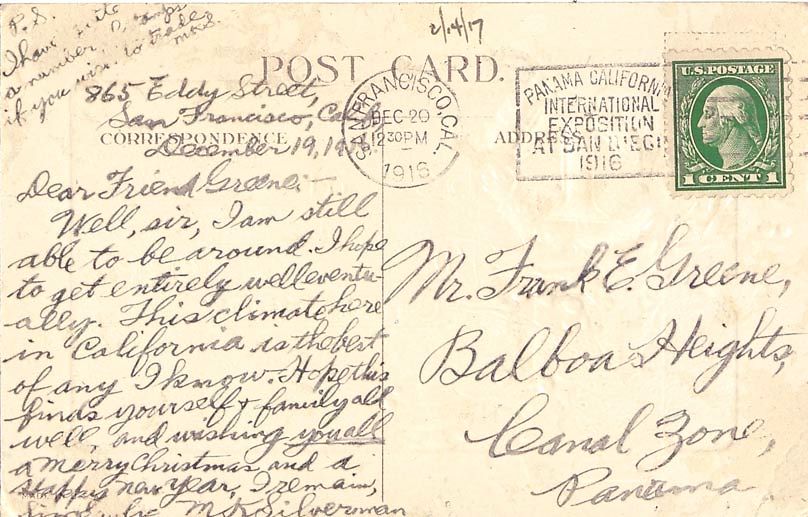 P.S.
I have quite
a number stamps
if you wish to trade
2/14/17
POST CARD.
865 Eddy Street,
San Francisco, Cal.
CORRESPONDENCE
December 19, 19
Dear Friend Greene:-
Well, sir, I am still
able to be around. I hope
to get entirely well eventu-
ally. This climate here
in California is the best
of any I know. Hope this
finds yourself & family all
well, and wishing you all
a Merry Christmas and a
Happy new Year, I remain,
Silverman
SAN FRANCISCO, CAL.
DEC 20
1230 PM
1916
PANAMA CALIFORNIA
INTERNATIONAL
EXPOSITION
AT SAN DIEGO
1916
U.S. POSTAGE
1 CENT 1
ADDRESS
Mr. Frank E. Greene,
Balboa Heights,
Canal Zone,
Panama